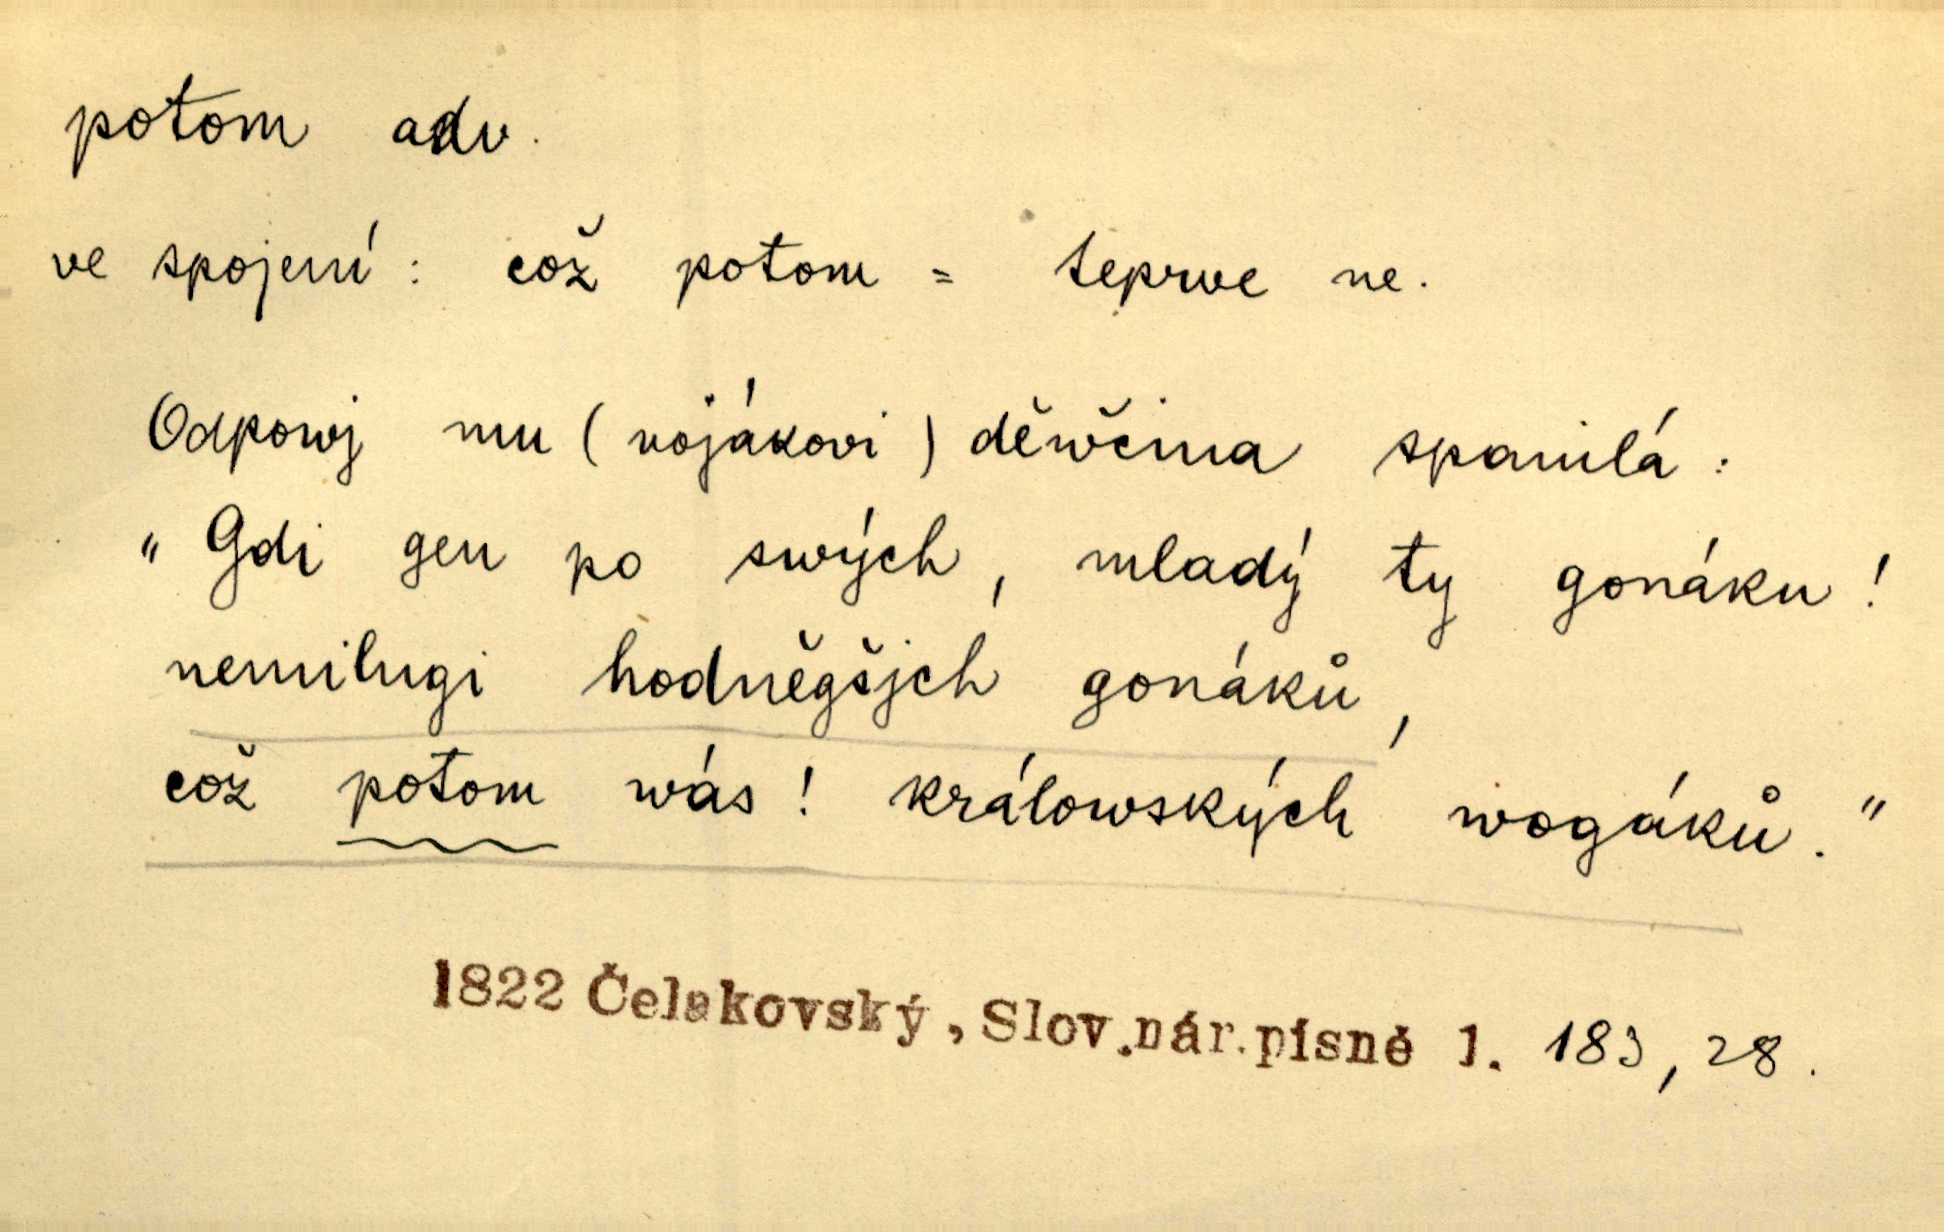 potom adv.
ve spojení: což potom = teprve ne.
Odpowj mu (vojákovi) děwčina spanilá:
"Gdi gen po swých, mladý ty gonáku!
nemilugi hodněgšjch gonáků,
což potom wás! králowských wogáků."
1822 Čelakovský, Slov.nár.písně 1. 183, 28.